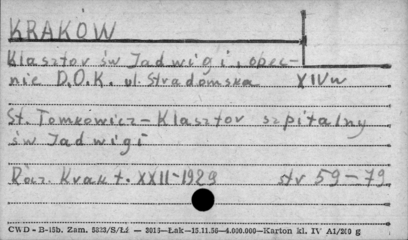 KRAKÓW
Klasztor św Jadwigi, opec-
nie D.O.K. ul Stradomska XIVw
St. Tomkowicz - Klasztor szpitalny
św Jadwigi
Rocz. Krak t. XXII-1929 str 59-79
CWD - B-15b. Zam. 5823/S/Łi — 3013—Łak—15.11.50—4.000.000—Karton kl. IV A1/200 g